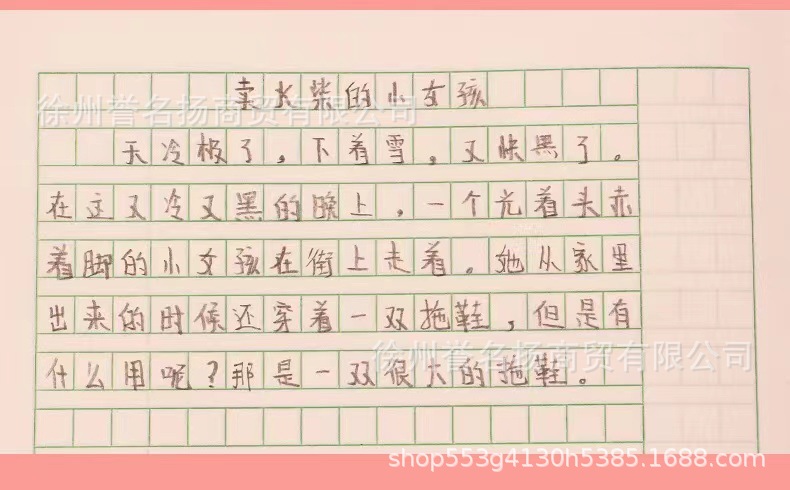 卖火柴的小女孩
天冷极了，下着雪，又快黑了。
在这又冷又黑的晚上，一个光着头赤
着脚的小女孩在街上走着。她从家里
出来的时候还穿着一双拖鞋，但是有
什么用呢？那是一双很大的拖鞋。
徐州誉名扬商贸有限公司
徐州誉名扬商贸有限公司
shop553g4130h5385.1688.com